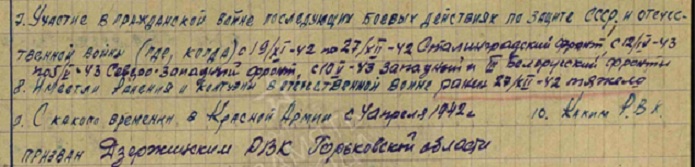 7. Участие в гражданской войне последующих боевых действиях по защите СССР и отечест-
твенной войны (где, когда) с 19/XI-42 по 27/XII-42 Сталинградский фронт, с 12/II-43
по 5/V-43 Северо-западный фронт, с 10 V-43 Западный и III Белорусский фронты
8. Имеет ли ранения и контузии в отечественной войне ранен 27/XII-42 тяжело
9. С какого времени в Красной Армии с 1 апреля 1942 г. 10. Каким Р.В.К.
призван Дзержинским РВК Горьковской области